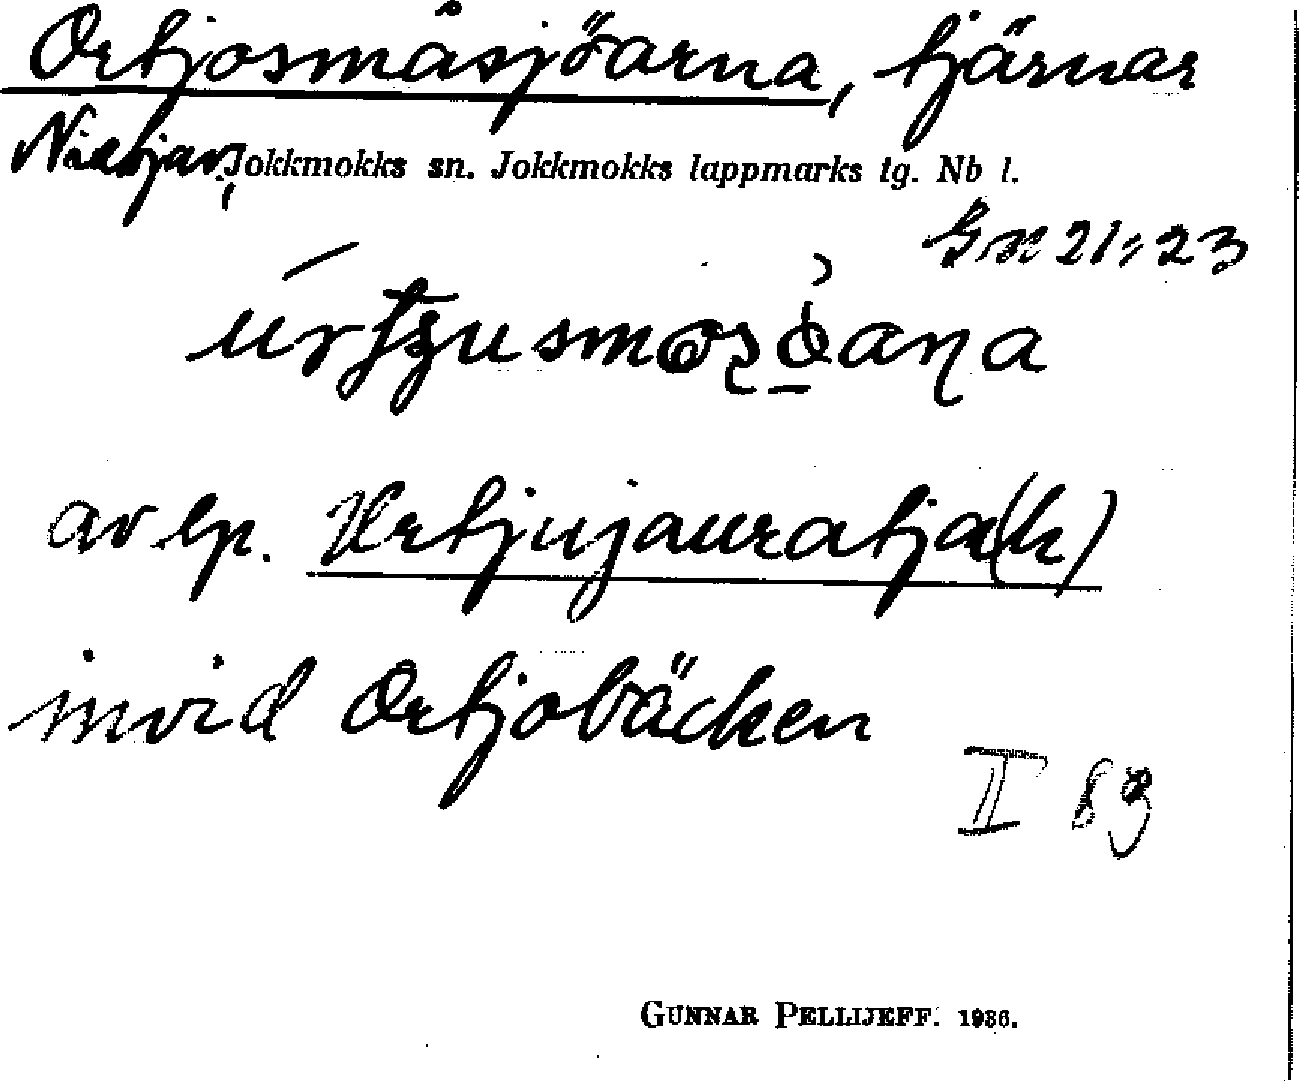 Ortjosmåsjöarna, tjärnar
Niavjav, Jokkmokks sn. Jokkmokks lappmarks tg. Nb l.
Gx 21:23
av lp. Urtjujauratja(h)
invid Ortjobäcken
II 83
GUNNAR PELLIJEFF. 1936.